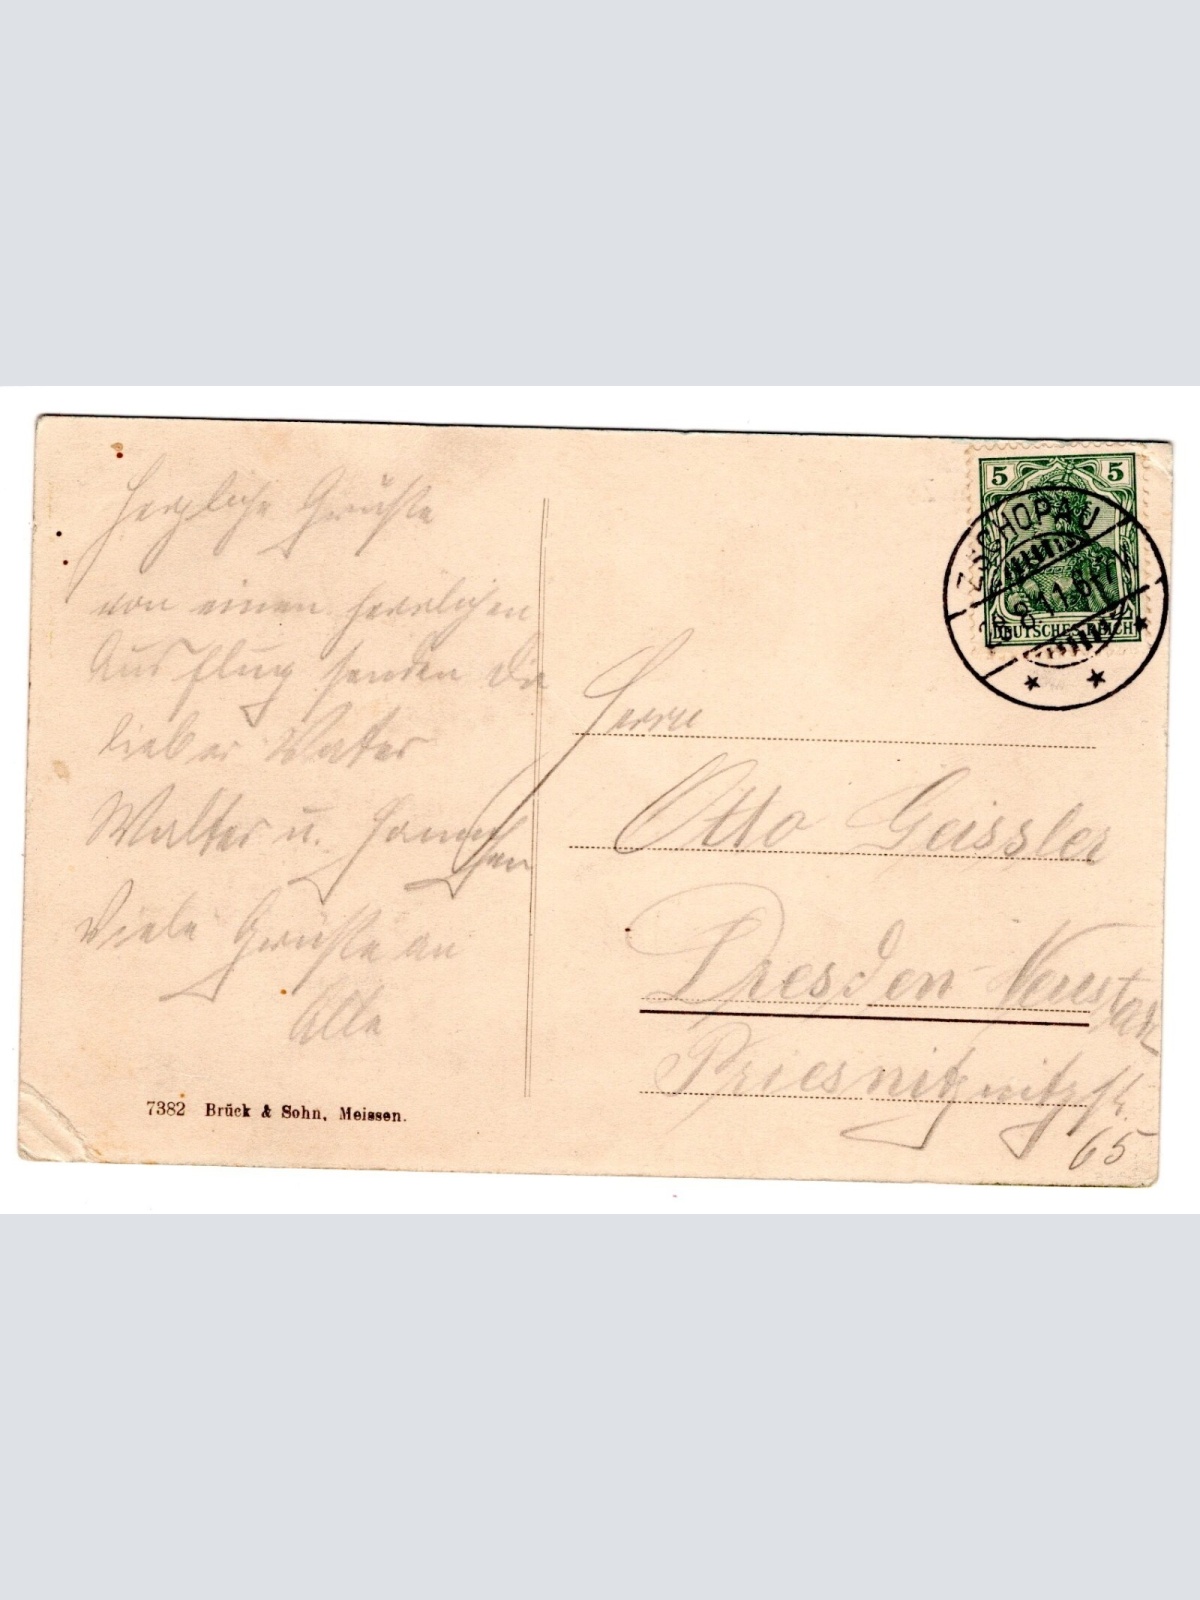 Herzliche Grüße
von einen herrlichen
Ausflug senden Dir
lieber Vater
Walter u. Hannchen
Viele Grüße an
Alle
7382 Brück & Sohn, Meissen.
5 5
DEUTSCHES REICH
ZSCHOPAU
8.11.6-7N
Herrn
Otto Geissler
Dresden-Neustadt
Priesnitzstr.
65